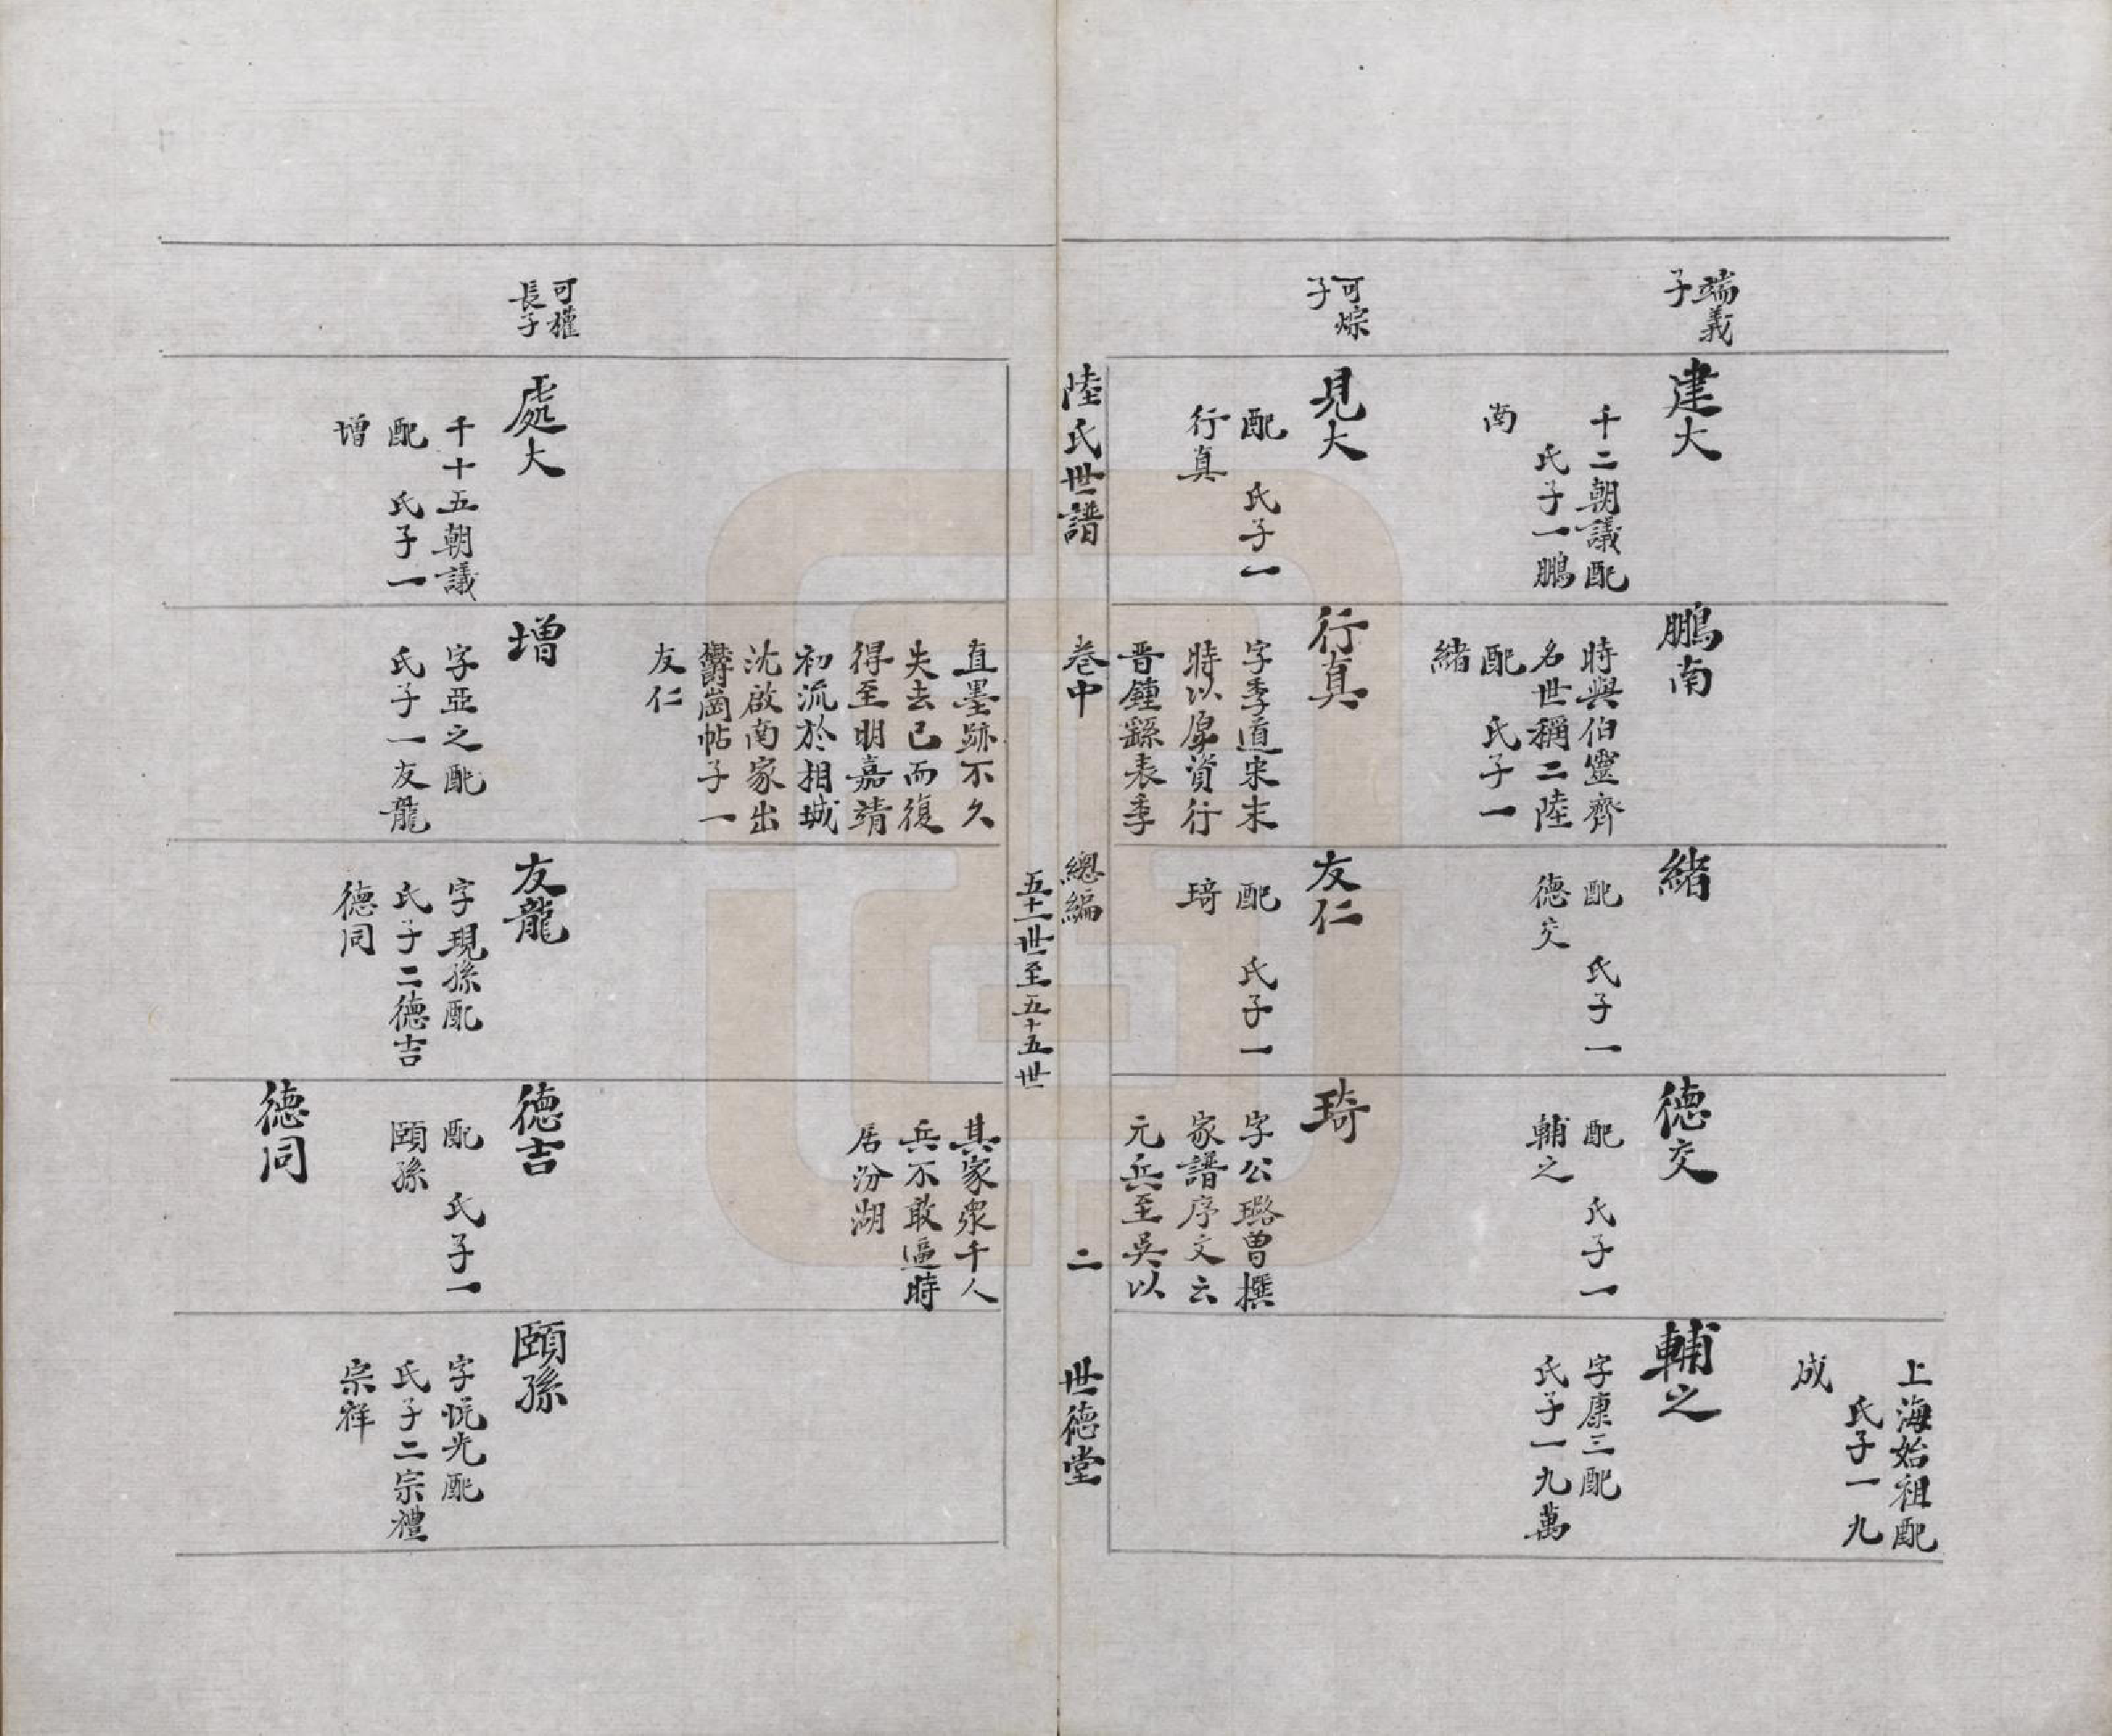 端義
子
建大
千二朝議配
氏子一鵬
南
鵬南
時與伯靈齊
名世稱二陸
配　氏子一
緒
緒
配　氏子一
德交
德交
配　氏子一
輔之
上海始祖配
氏子一九
成
輔之
字康三配
氏子一九萬
可悰
子
見大
配　氏子一
行真
行真
字季道宋末
時以厚資行
晋鍾繇表季
友仁
配　氏子一
琦
琦
字公璐曾撰
家譜序文云
元兵至吳以
陸氏世譜
卷中
總編
五十一世至五十五世
二
世德堂
直墨跡不久
失去已而復
得至明嘉靖
初流於相城
沈啟南家出
鬱崗帖子一
友仁
其家衆千人
兵不敢逼時
居汾湖
可權
長子
處大
千十五朝議
配　氏子一
增
增
字亞之配
氏子一友龍
友龍
字現孫配
氏子二德吉
德同
德吉
配　氏子一
頤孫
德同
頤孫
字悦光配
氏子二宗禮
宗祥